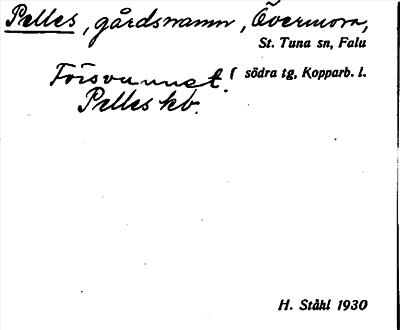 Pelles, gårdsnamn, Övermora,
St. Tuna sn, Falu
södra tg, Kopparb. l.
Försvunnet!
Pelles kv.
H. Ståhl 1930